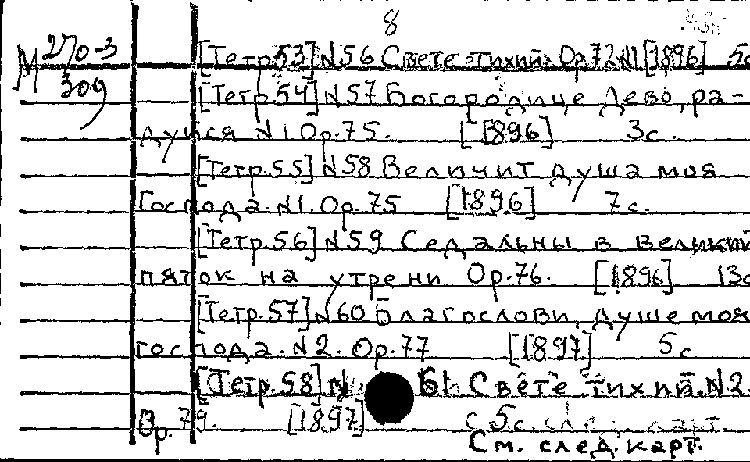 8
М 270-3 [Тетр.53] №56 Свете тихий. Ор.72 №1 [1896] 5с
309 [Тетр.54] №57 Богородице Дево, ра-
дуйся №1 Ор.75. [1896] 3с.
[Тетр.55] №58 Величит душа моя
Господа. №1. Ор.75 [1896] 7с.
[Тетр.56] №59 Седальны в великий
пяток на утрени Ор.76. [1896] 13с
[Тетр.57] №60 Благослови, душе моя
господа. №2. Ор.77 [1897] 5с
[Тетр.58] № 61. Свете тихий. №2.
Ор.79. [1897] с.5с.
См. след. карт.